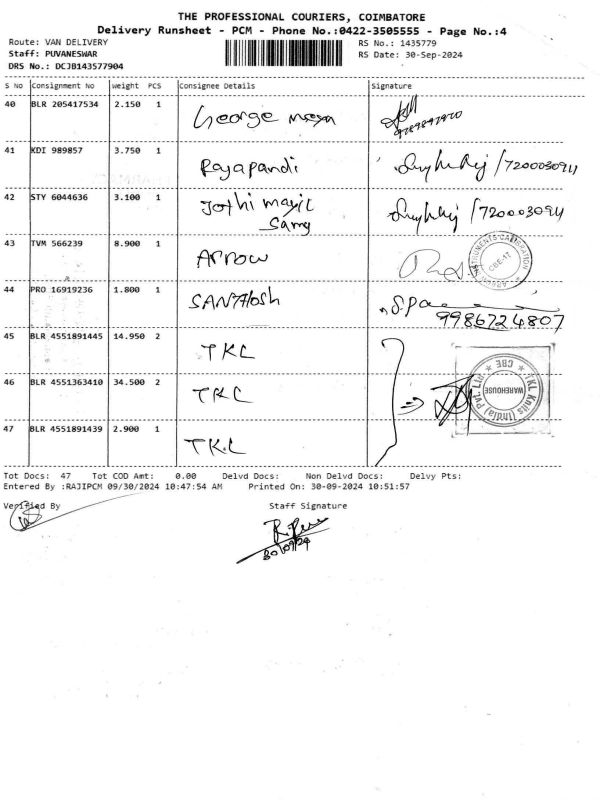 THE PROFESSIONAL COURIERS, COIMBATORE
Delivery Runsheet - PCM - Phone No.:0422-3505555 - Page No.:4
Route: VAN DELIVERY RS No.: 1435779
Staff: PUVANESWAR RS Date: 30-Sep-2024
DRS No.: DCJB143577904
S No Consignment No Weight PCS Consignee Details Signature
40 BLR 205417534 2.150 1 George
41 KDI 989857 3.750 1 Rajapandi /7200030911
42 STY 6044636 3.100 1 Jothi
Samy /7200030911
43 TVM 566239 8.900 1 Arrow
INSTRUMENTS CALIBRATION
CBE-17
44 PRO 16919236 1.800 1 SANthosh
9986724807
45 BLR 4551891445 14.950 2 TKL
46 BLR 4551363410 34.500 2 TKL
TKL Knits (India) Pvt. Ltd
WAREHOUSE
CBE
47 BLR 4551891439 2.900 1 TKL
Tot Docs: 47 Tot COD Amt: 0.00 Delvd Docs: Non Delvd Docs: Delvy Pts:
Entered By :RAJIPCM 09/30/2024 10:47:54 AM Printed On: 30-09-2024 10:51:57
Verified By Staff Signature
30/09/24